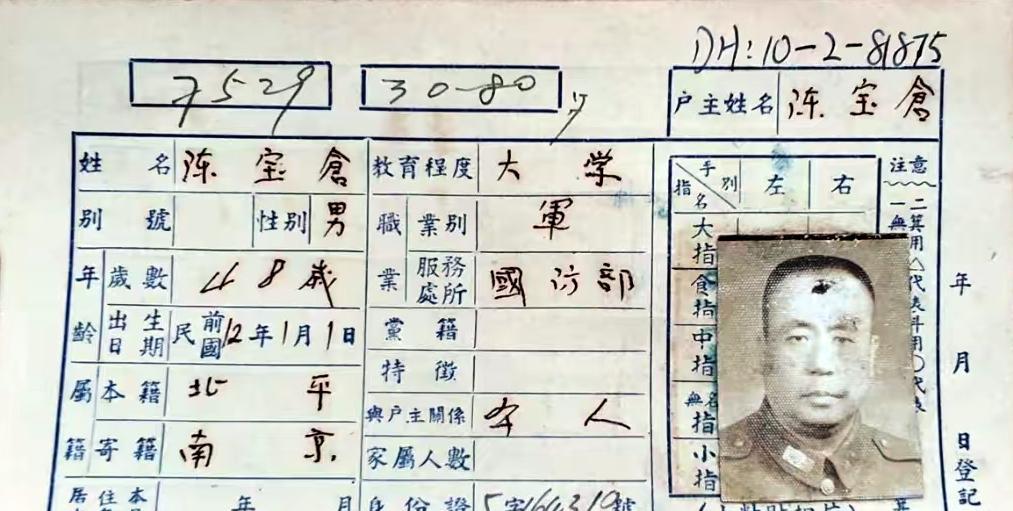 DH:10-2-81875
7529 30-80
户主姓名 陈宝倉
姓名 陈宝倉 教育程度 大学
別號 性別 男 職業 業別 軍
年齡 歲數 48歲 服務處所 國防部
出生日期 民國前12年1月1日 黨籍
特徵
屬籍 本籍 北平 與戶主關係 本人
寄籍 南京 家屬人數
居住本 年 月 身份證 字 號
手別 指名 左 右
大指
食指
中指
無名指
小指
注意
一無
二箕用△代表斗用○代表
年 月 日登記